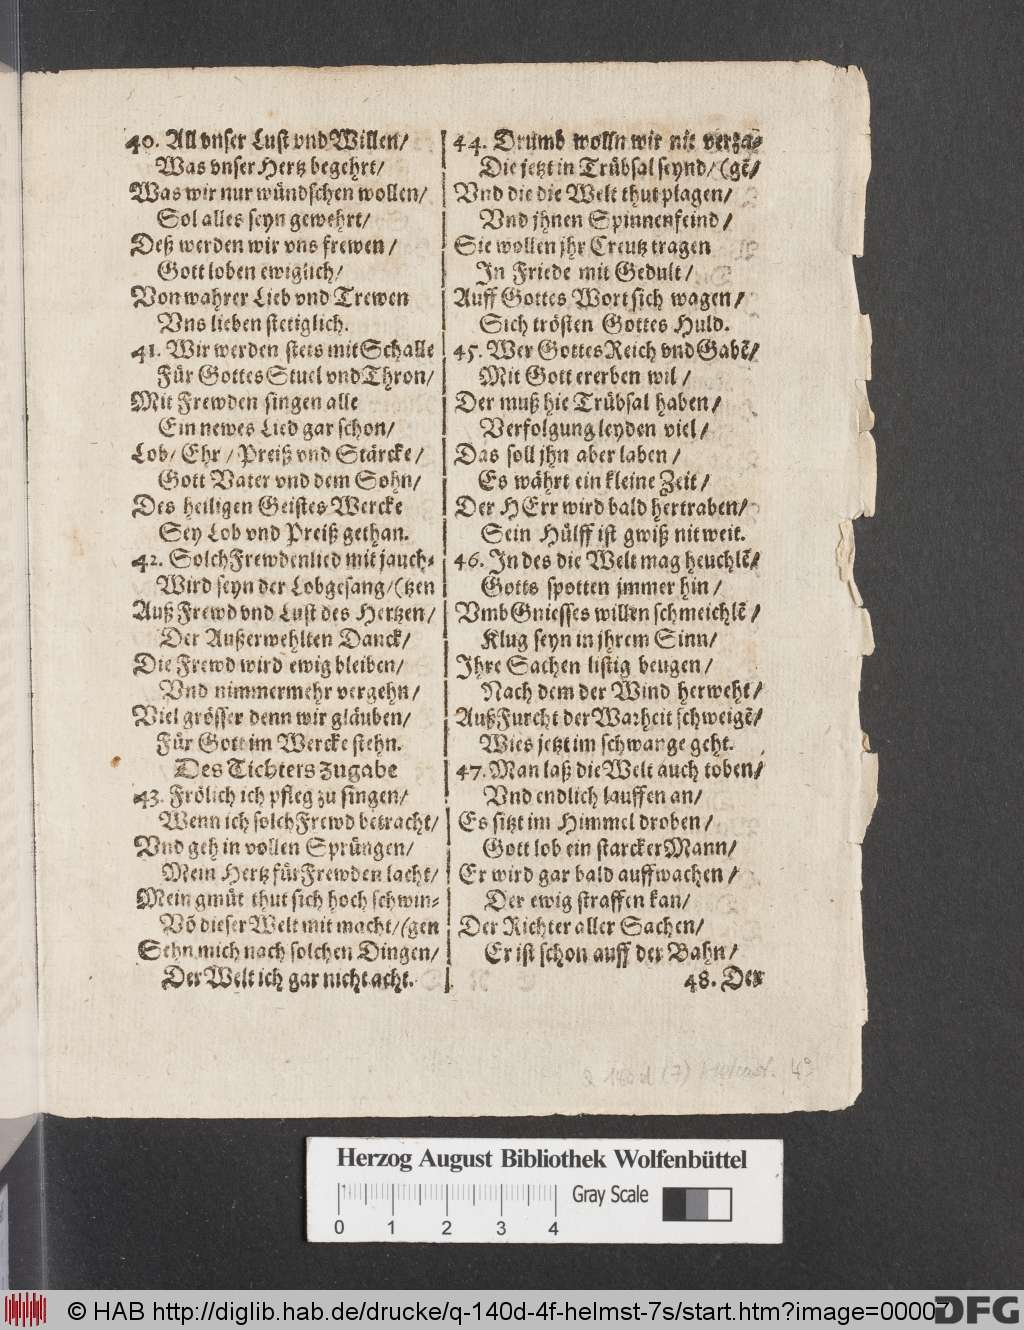 40. All vnser Lust vnd Willen/
Was vnser Hertz begehrt/
Was wir nur wündschen wollen/
Sol alles seyn gewehrt/
Deß werden wir vns frewen/
Gott loben ewiglich/
Von wahrer Lieb vnd Trewen
Vns lieben stetiglich.
41. Wir werden stets mit Schalle
Für Gottes Stuel vnd Thron/
Mit Frewden singen alle
Ein newes Lied gar schon/
Lob/ Ehr/ Preiß vnd Stärcke/
Gott Vater vnd dem Sohn/
Des heiligen Geistes Wercke
Sey Lob vnd Preiß gethan.
42. Solch Frewdenlied mit jauch-
Wird seyn der Lobgesang/(tzen
Auß Frewd vnd Lust des Hertzen/
Der Außerwehlten Danck/
Die Frewd wird ewig bleiben/
Vnd nimmermehr vergehn/
Viel grösser denn wir gläuben/
Für Gott im Wercke stehn.
Des Tichters Zugabe
43. Frölich ich pfleg zu singen/
Wenn ich solch Frewd betracht/
Vnd geh in vollen Sprüngen/
Mein Hertz für Frewden lacht/
Mein gmüt thut sich hoch schwin-
Võ dieser Welt mit macht/(gen
Sehn mich nach solchen Dingen/
Der Welt ich gar nicht acht.
44. Drumb wolln wir nit verza-
Die jetzt in Trübsal seynd/(gẽ/
Vnd die die Welt thut plagen/
Vnd jhnen Spinnenfeind/
Sie wollen jhr Creutz tragen
In Friede mit Gedult/
Auff Gottes Wort sich wagen/
Sich trösten Gottes Huld.
45. Wer Gottes Reich vnd Gabẽ/
Mit Gott ererben wil/
Der muß hie Trübsal haben/
Verfolgung leyden viel/
Das soll jhn aber laben/
Es währt ein kleine Zeit/
Der HErr wird bald hertraben/
Sein Hülff ist gwiß nit weit.
46. In des die Welt mag heuchlẽ/
Gotts spotten immer hin/
Vmb Gniesses willen schmeichlẽ/
Klug seyn in jhrem Sinn/
Ihre Sachen listig beugen/
Nach dem der Wind herweht/
Auß Furcht der Warheit schweigẽ/
Wies jetzt im schwange geht.
47. Man laß die Welt auch toben/
Vnd endlich lauffen an/
Es sitzt im Himmel droben/
Gott lob ein starcker Mann/
Er wird gar bald auffwachen/
Der ewig straffen kan/
Der Richter aller Sachen/
Er ist schon auff der Bahn/
48. Der
Herzog August Bibliothek Wolfenbüttel
Gray Scale
0 1 2 3 4
© HAB http://diglib.hab.de/drucke/q-140d-4f-helmst-7s/start.htm?image=00007
DFG